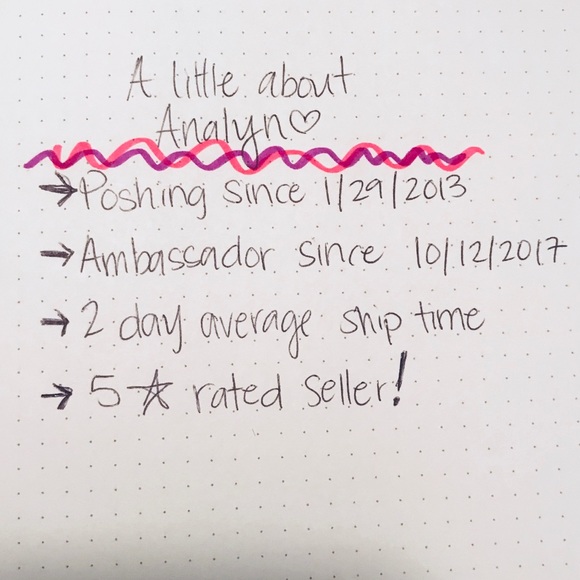 A little about
Analyn♡
→Poshing since 1/29/2013
→Ambassador since 10/12/2017
→2 day average ship time
→5☆ rated seller!